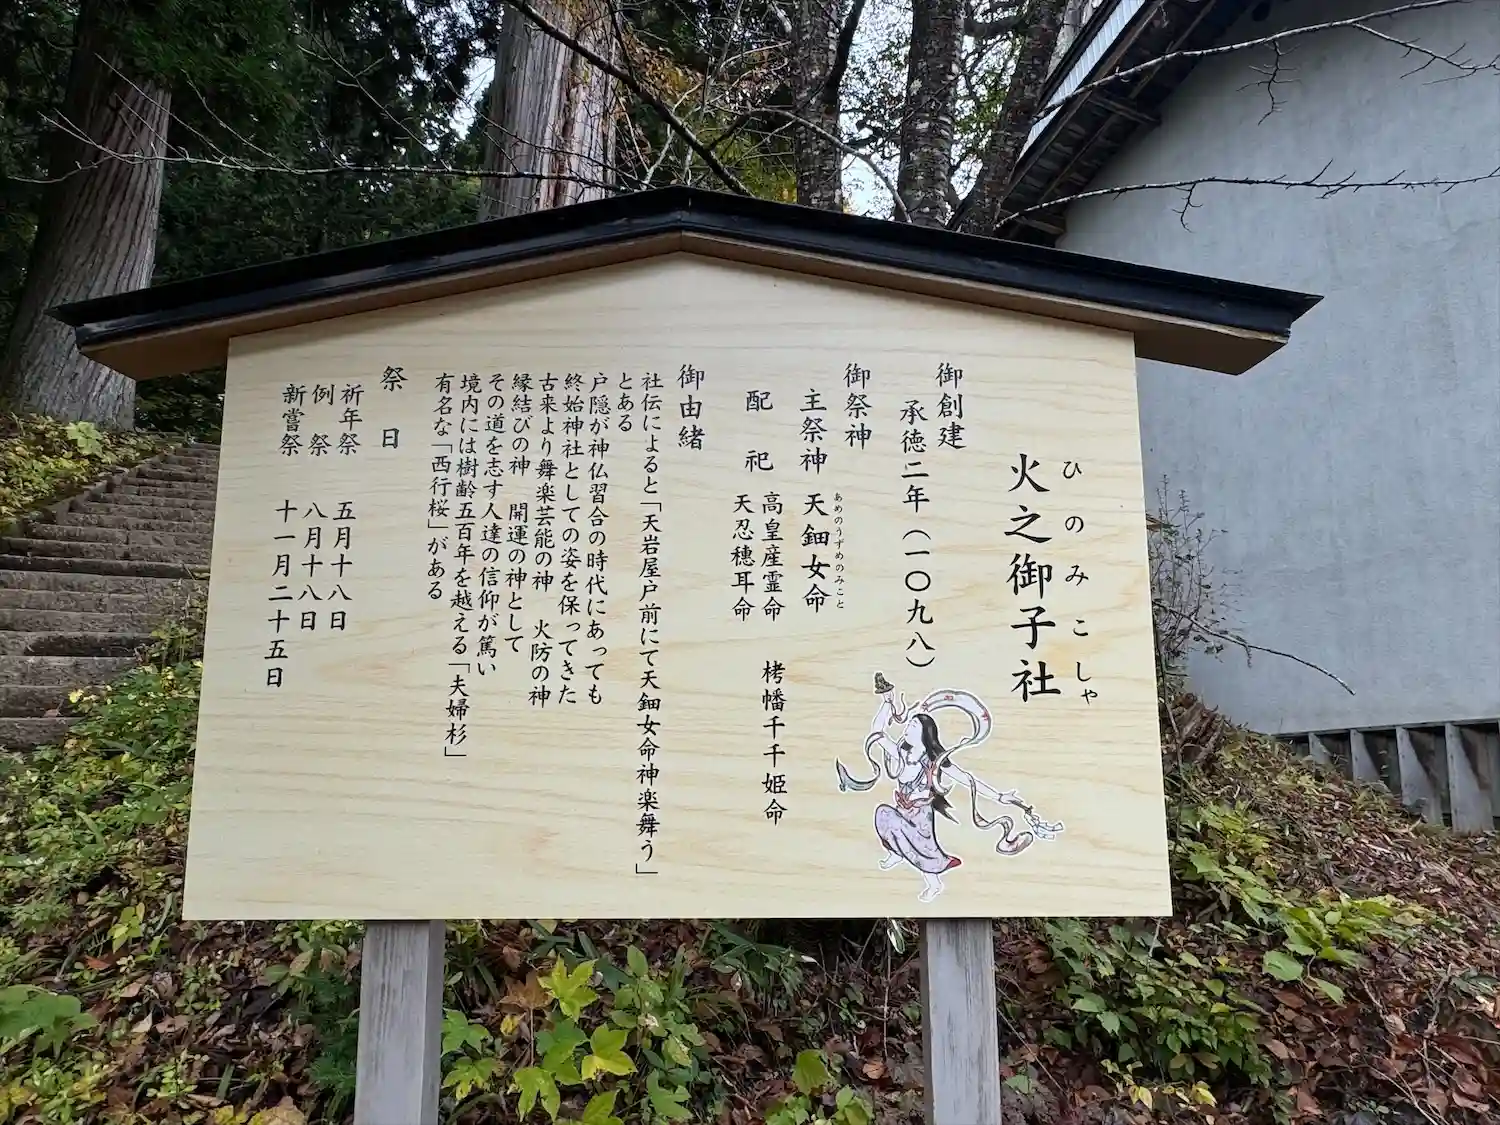 火之御子社
ひのみこしゃ
御創建
承徳二年（一〇九八）
御祭神
主祭神 天鈿女命
あめのうずめのみこと
配祀 高皇産霊命 栲幡千千姫命
天忍穗耳命
御由緒
社伝によると「天岩屋戸前にて天鈿女命神楽舞う」
とある
戸隠が神仏習合の時代にあっても
終始神社としての姿を保ってきた
古来より舞楽芸能の神 火防の神
縁結びの神 開運の神として
その道を志す人達の信仰が篤い
境内には樹齢五百年を越える「夫婦杉」
有名な「西行桜」がある
祭日
祈年祭 五月十八日
例祭 八月十八日
新嘗祭 十一月二十五日